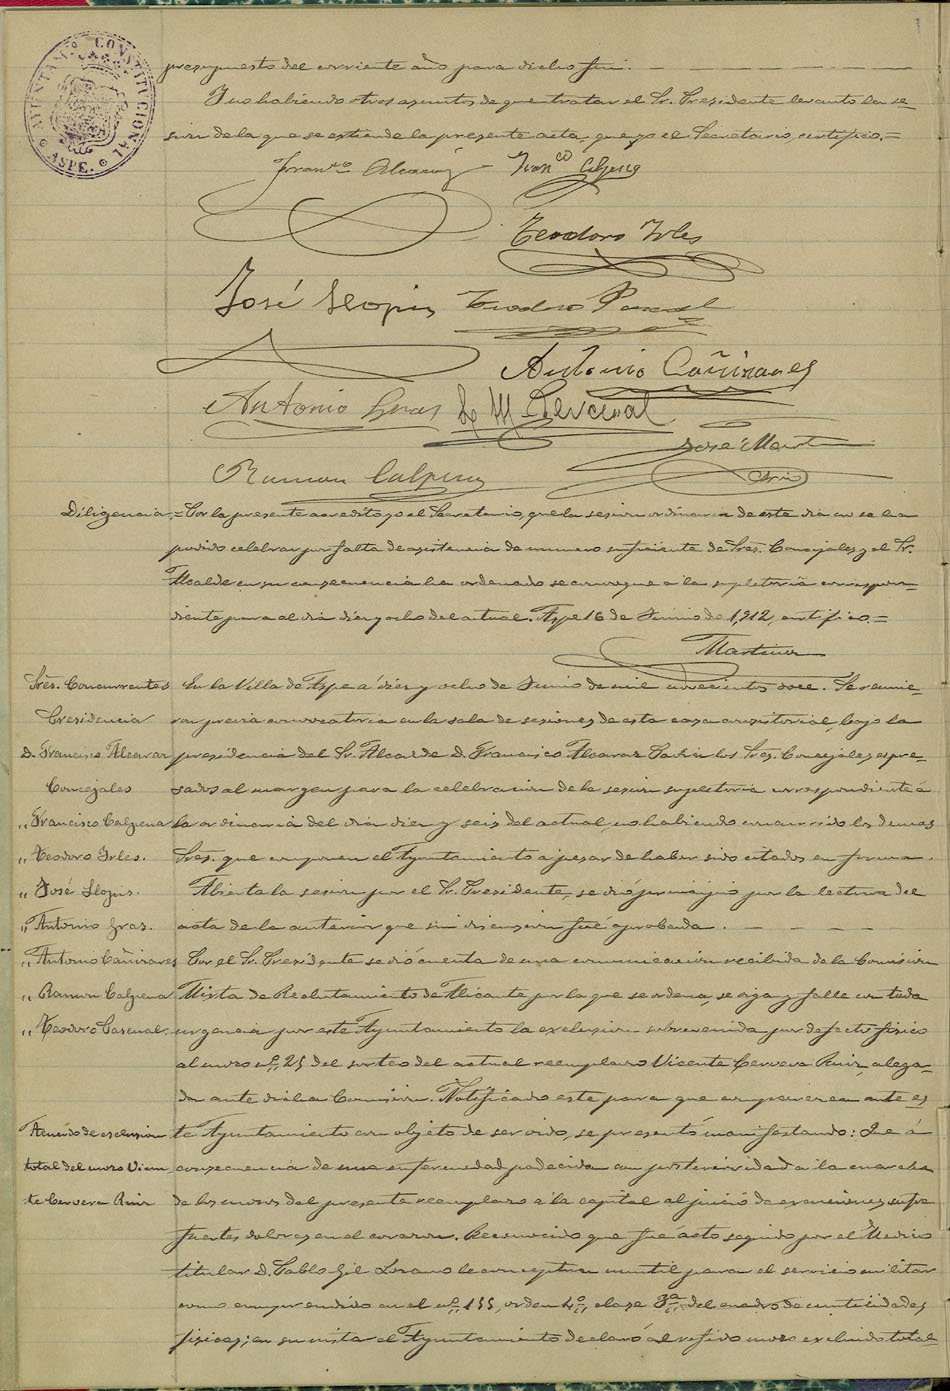 AYUNTAM.º CONSTITUCIONAL
ASPE.
presupuesto del corriente año para dicho fin.
Y no habiendo otros asuntos de que tratar el Sr. Presidente levantó la se-
sión de la que se extiende la presente acta, que yo el Secretario, certifico.=
Fran.co Alcaraz Fran.co Calpena
Teodoro Irles
José Llopis Teodoro Pascual
Antonio Cañizares
Antonio Gras
José Mart
Ramon Calpena
Diligencia.= Por la presente acredito yo el Secretario, que la sesión ordinaria de este dia no se ha
podido celebrar por falta de asistencia de numero suficiente de Sres. Concejales, y el Sr.
Alcalde en su consecuencia ha ordenado se convoque a la supletoria correspon-
diente para al dia diez y ocho del actual. Aspe 16 de Junio de 1,912, certifico.=
Martinez
Sres. Concurrentes
Presidencia
D. Francisco Alcaraz
Concejales
„ Francisco Calpena
„ Teodoro Irles.
„ José Llopis.
„ Antonio Gras.
„ Antonio Cañizares
„ Ramon Calpena
„ Teodoro Pascual.
En la Villa de Aspe a diez y ocho de Junio de mil novecientos doce. Se reunie-
ron previa convocatoria en la sala de sesiones de esta casa consistorial, bajo la
presidencia del Sr. Alcalde D. Francisco Alcaraz los Sres. Concejales expre-
sados al margen para la celebracion de la sesión supletoria correspondiente á
la ordinaria del dia diez y seis del actual, no habiendo concurrido los demas
Sres. que componen el Ayuntamiento a pesar de haber sido citados en forma.
Abierta la sesión por el Sr. Presidente, se dió principio por la lectura del
acta de la anterior que sin discusion fué aprobada.
Por el Sr. Presidente se dió cuenta de una comunicación recibida de la Comisión
Mixta de Reclutamiento de Alicante por la que se ordena, se oiga y falle con toda
urgencia por este Ayuntamiento la exclusion sobrevenida por defecto fisico
al mozo nº 25 del sorteo del actual reemplazo Vicente Cervera Ruiz, alega-
da ante dicha Comisión. Notificado este para que compareciera ante es-
Acuerdo de exclusion
total del mozo Vicen-
te Cervera Ruiz
te Ayuntamiento con objeto de ser oido, se presentó manifestando: Que á
consecuencia de una enfermedad padecida con posterioridad a la marcha
de los mozos del presente reemplazo á la capital al juicio de exenciones, sufre
fuertes dolores en el corazon. Reconocido que fué acto seguido por el Medico
titular D. Pablo Gil Lozano le conceptua inutil para el servicio militar
como comprendido en el nº 155, orden 4º, clase 3ª, del cuadro de inutilidades
fisicas; en su vista el Ayuntamiento declaró al referido mozo excluido total-